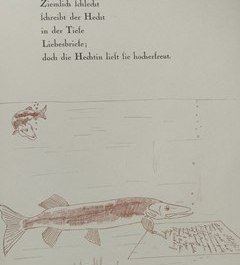 Ziemlich schlecht
schreibt der Hecht
in der Tiefe
Liebesbriefe;
doch die Hechtin liest sie hocherfreut.